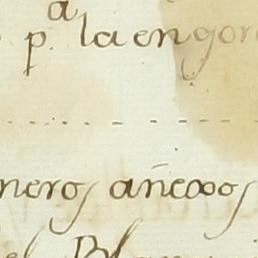 a
p.a la engor
neros añexos
el Blan